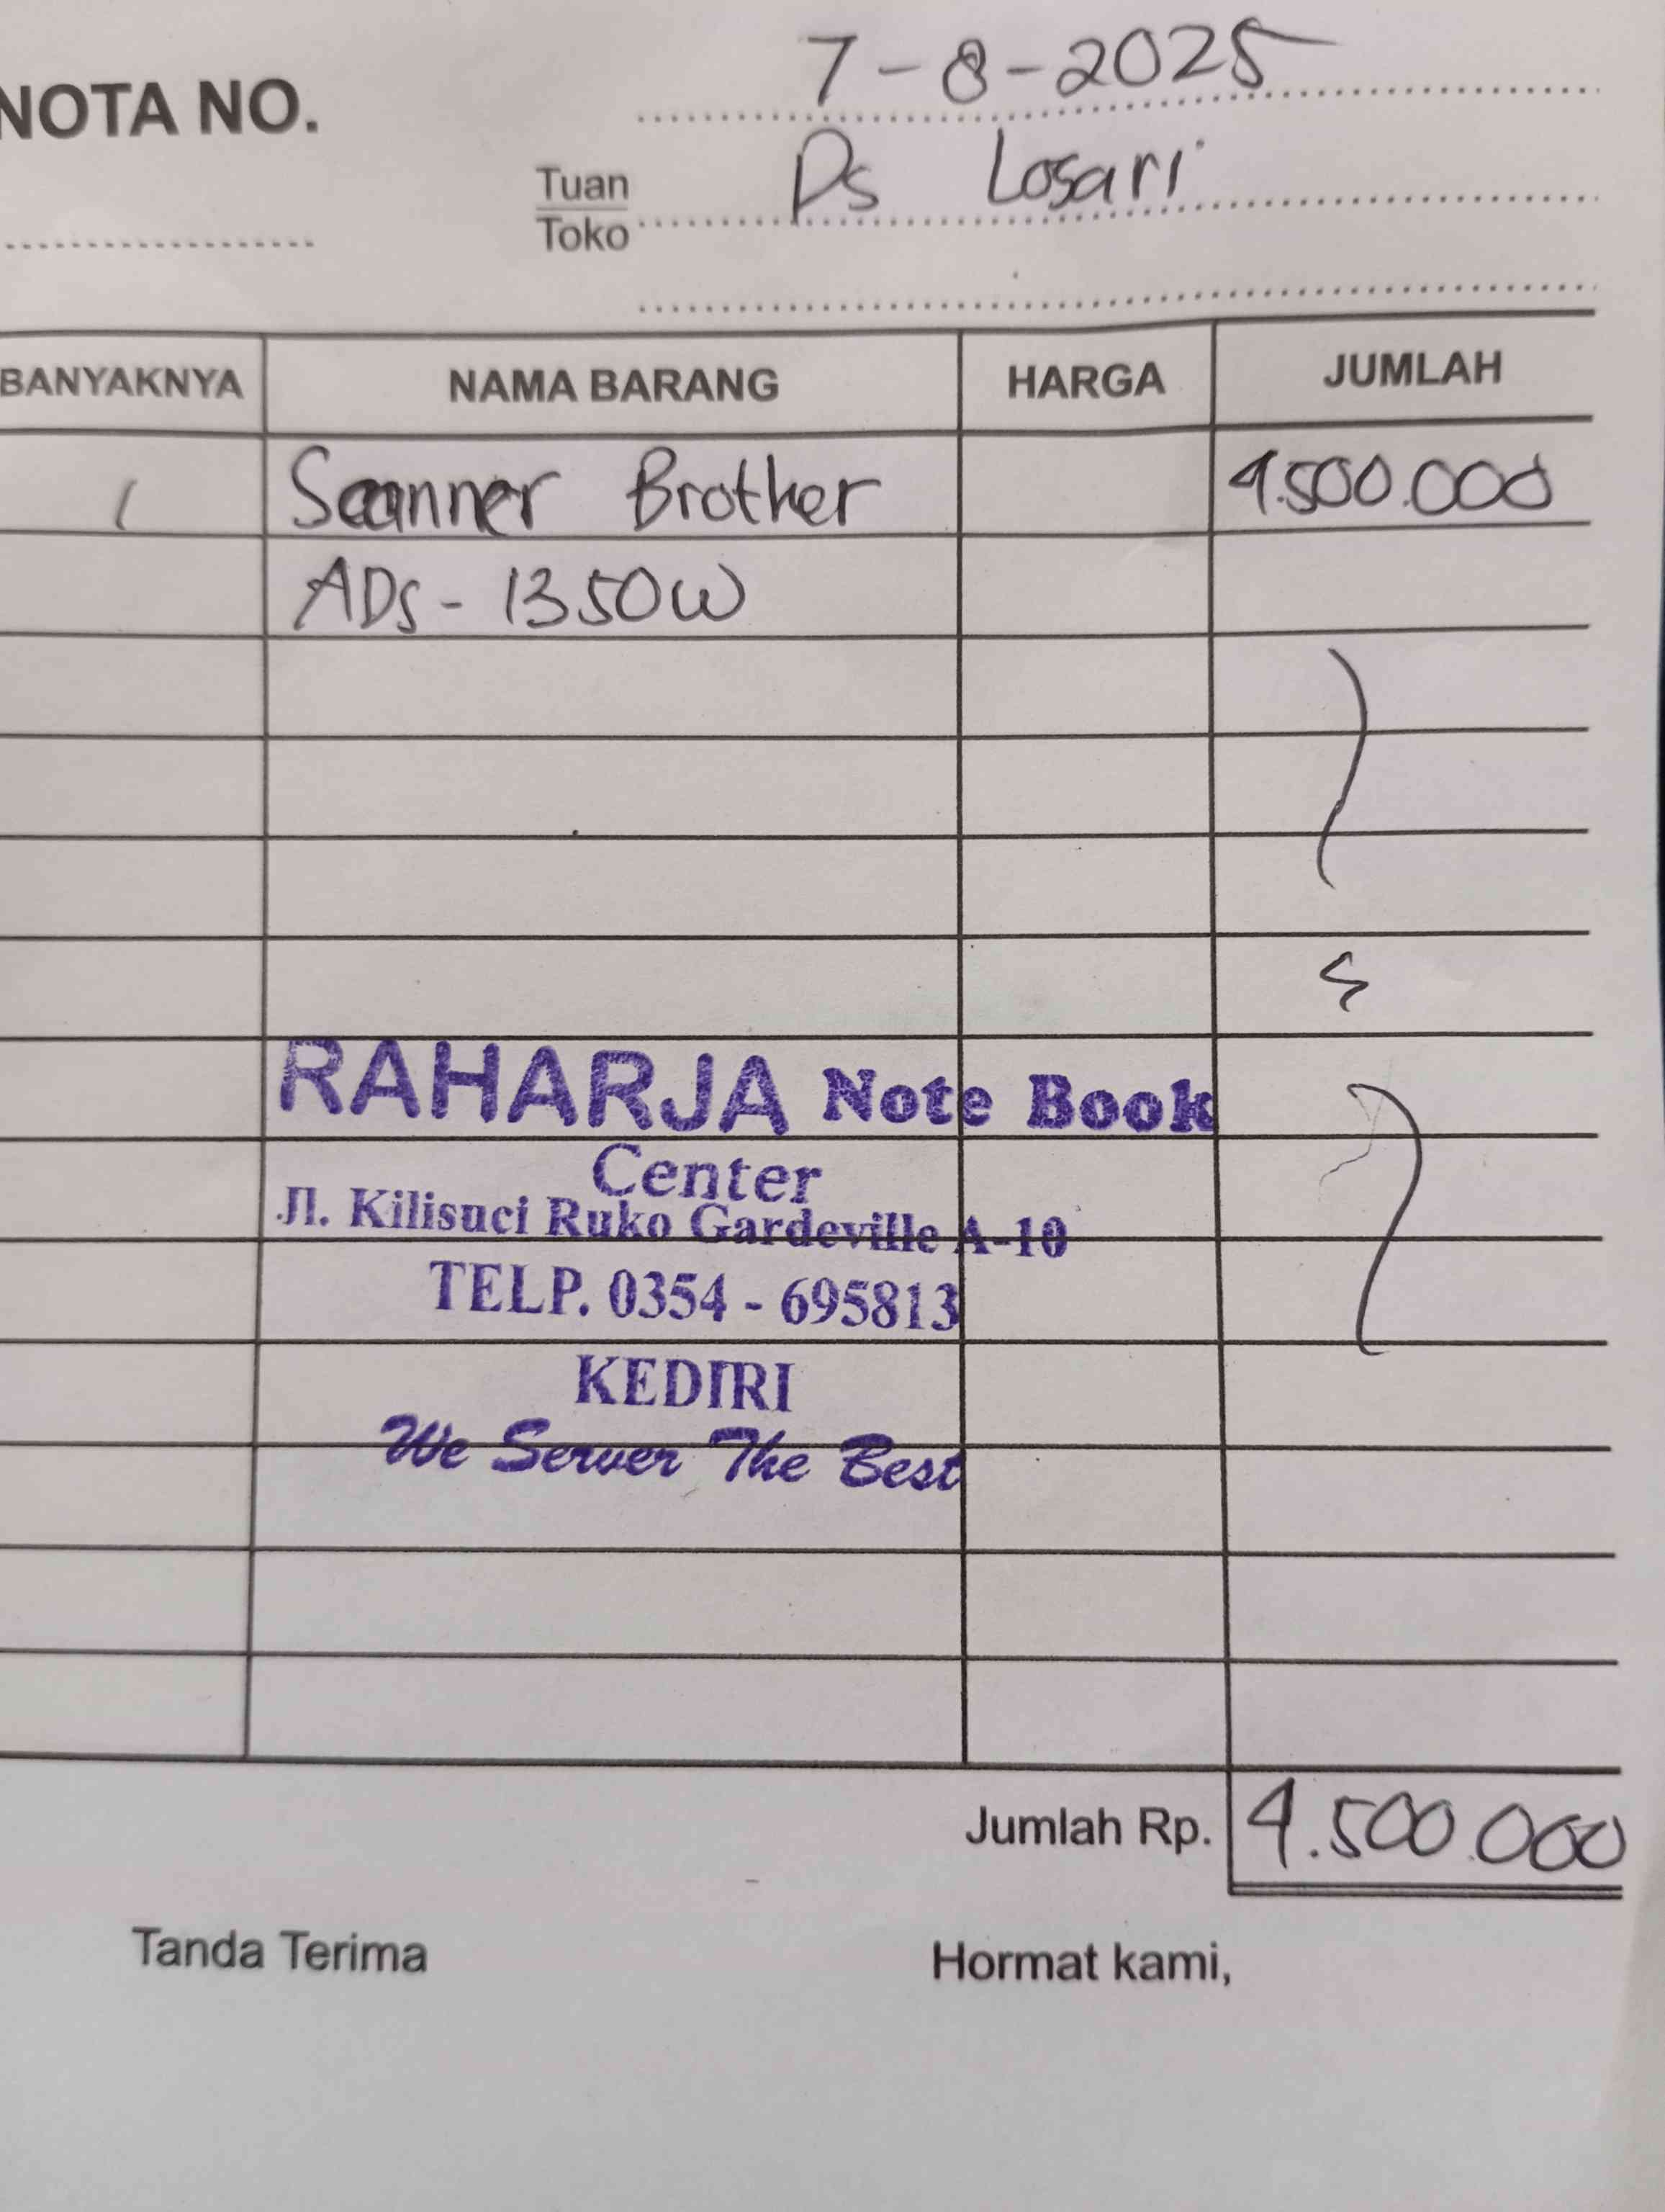 7-8-2025
NOTA NO.
Tuan
Toko
Ds Losari
BANYAKNYA NAMA BARANG HARGA JUMLAH
1 Scanner Brother 4.500.000
ADS-1350W
RAHARJA Note Book
Center
Jl. Kilisuci Ruko Gardeville A-10
TELP. 0354 - 695813
KEDIRI
We Server The Best
Jumlah Rp. 4.500.000
Tanda Terima Hormat kami,